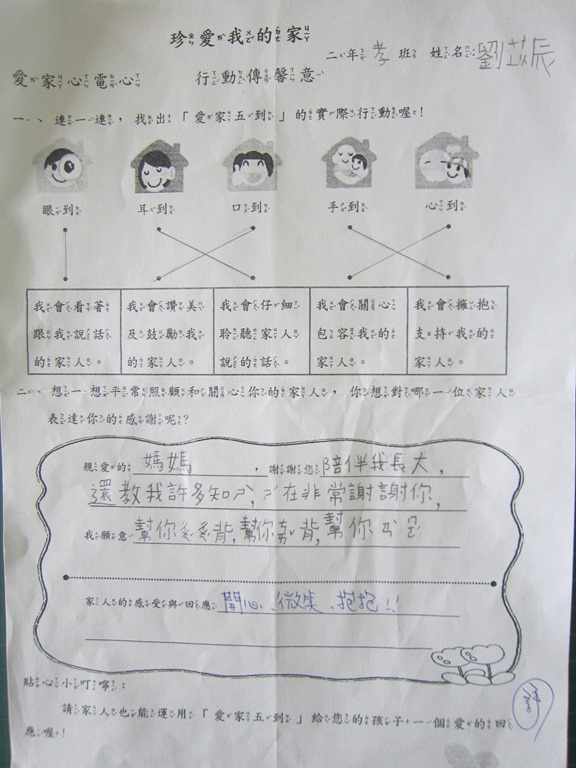 珍愛我的家
二年孝班 姓名:劉芷辰
愛家心電心 行動傳馨意
一、連一連,找出「愛家五到」的實際行動喔!
眼到 耳到 口到 手到 心到
我會看著跟我說話的家人。
我會讚美及鼓勵我的家人。
我會仔細聆聽家人說的話。
我會關心包容我的家人。
我會擁抱支持我的家人。
二、想一想平常照顧和關心你的家人,你想對哪一位家人
表達你的感謝呢?
親愛的媽媽,謝謝您陪伴我長大,
還教我許多知ㄕˋ,ㄕˊ在非常謝謝你,
我願意幫你ㄑㄠㄑㄠ背,幫你ㄋㄧㄝ背,幫你
家人的感受與回應 開心、微笑、抱抱!!
貼心小叮嚀:
請家人也能運用「愛家五到」給您的孩子,一個愛的回
應喔!